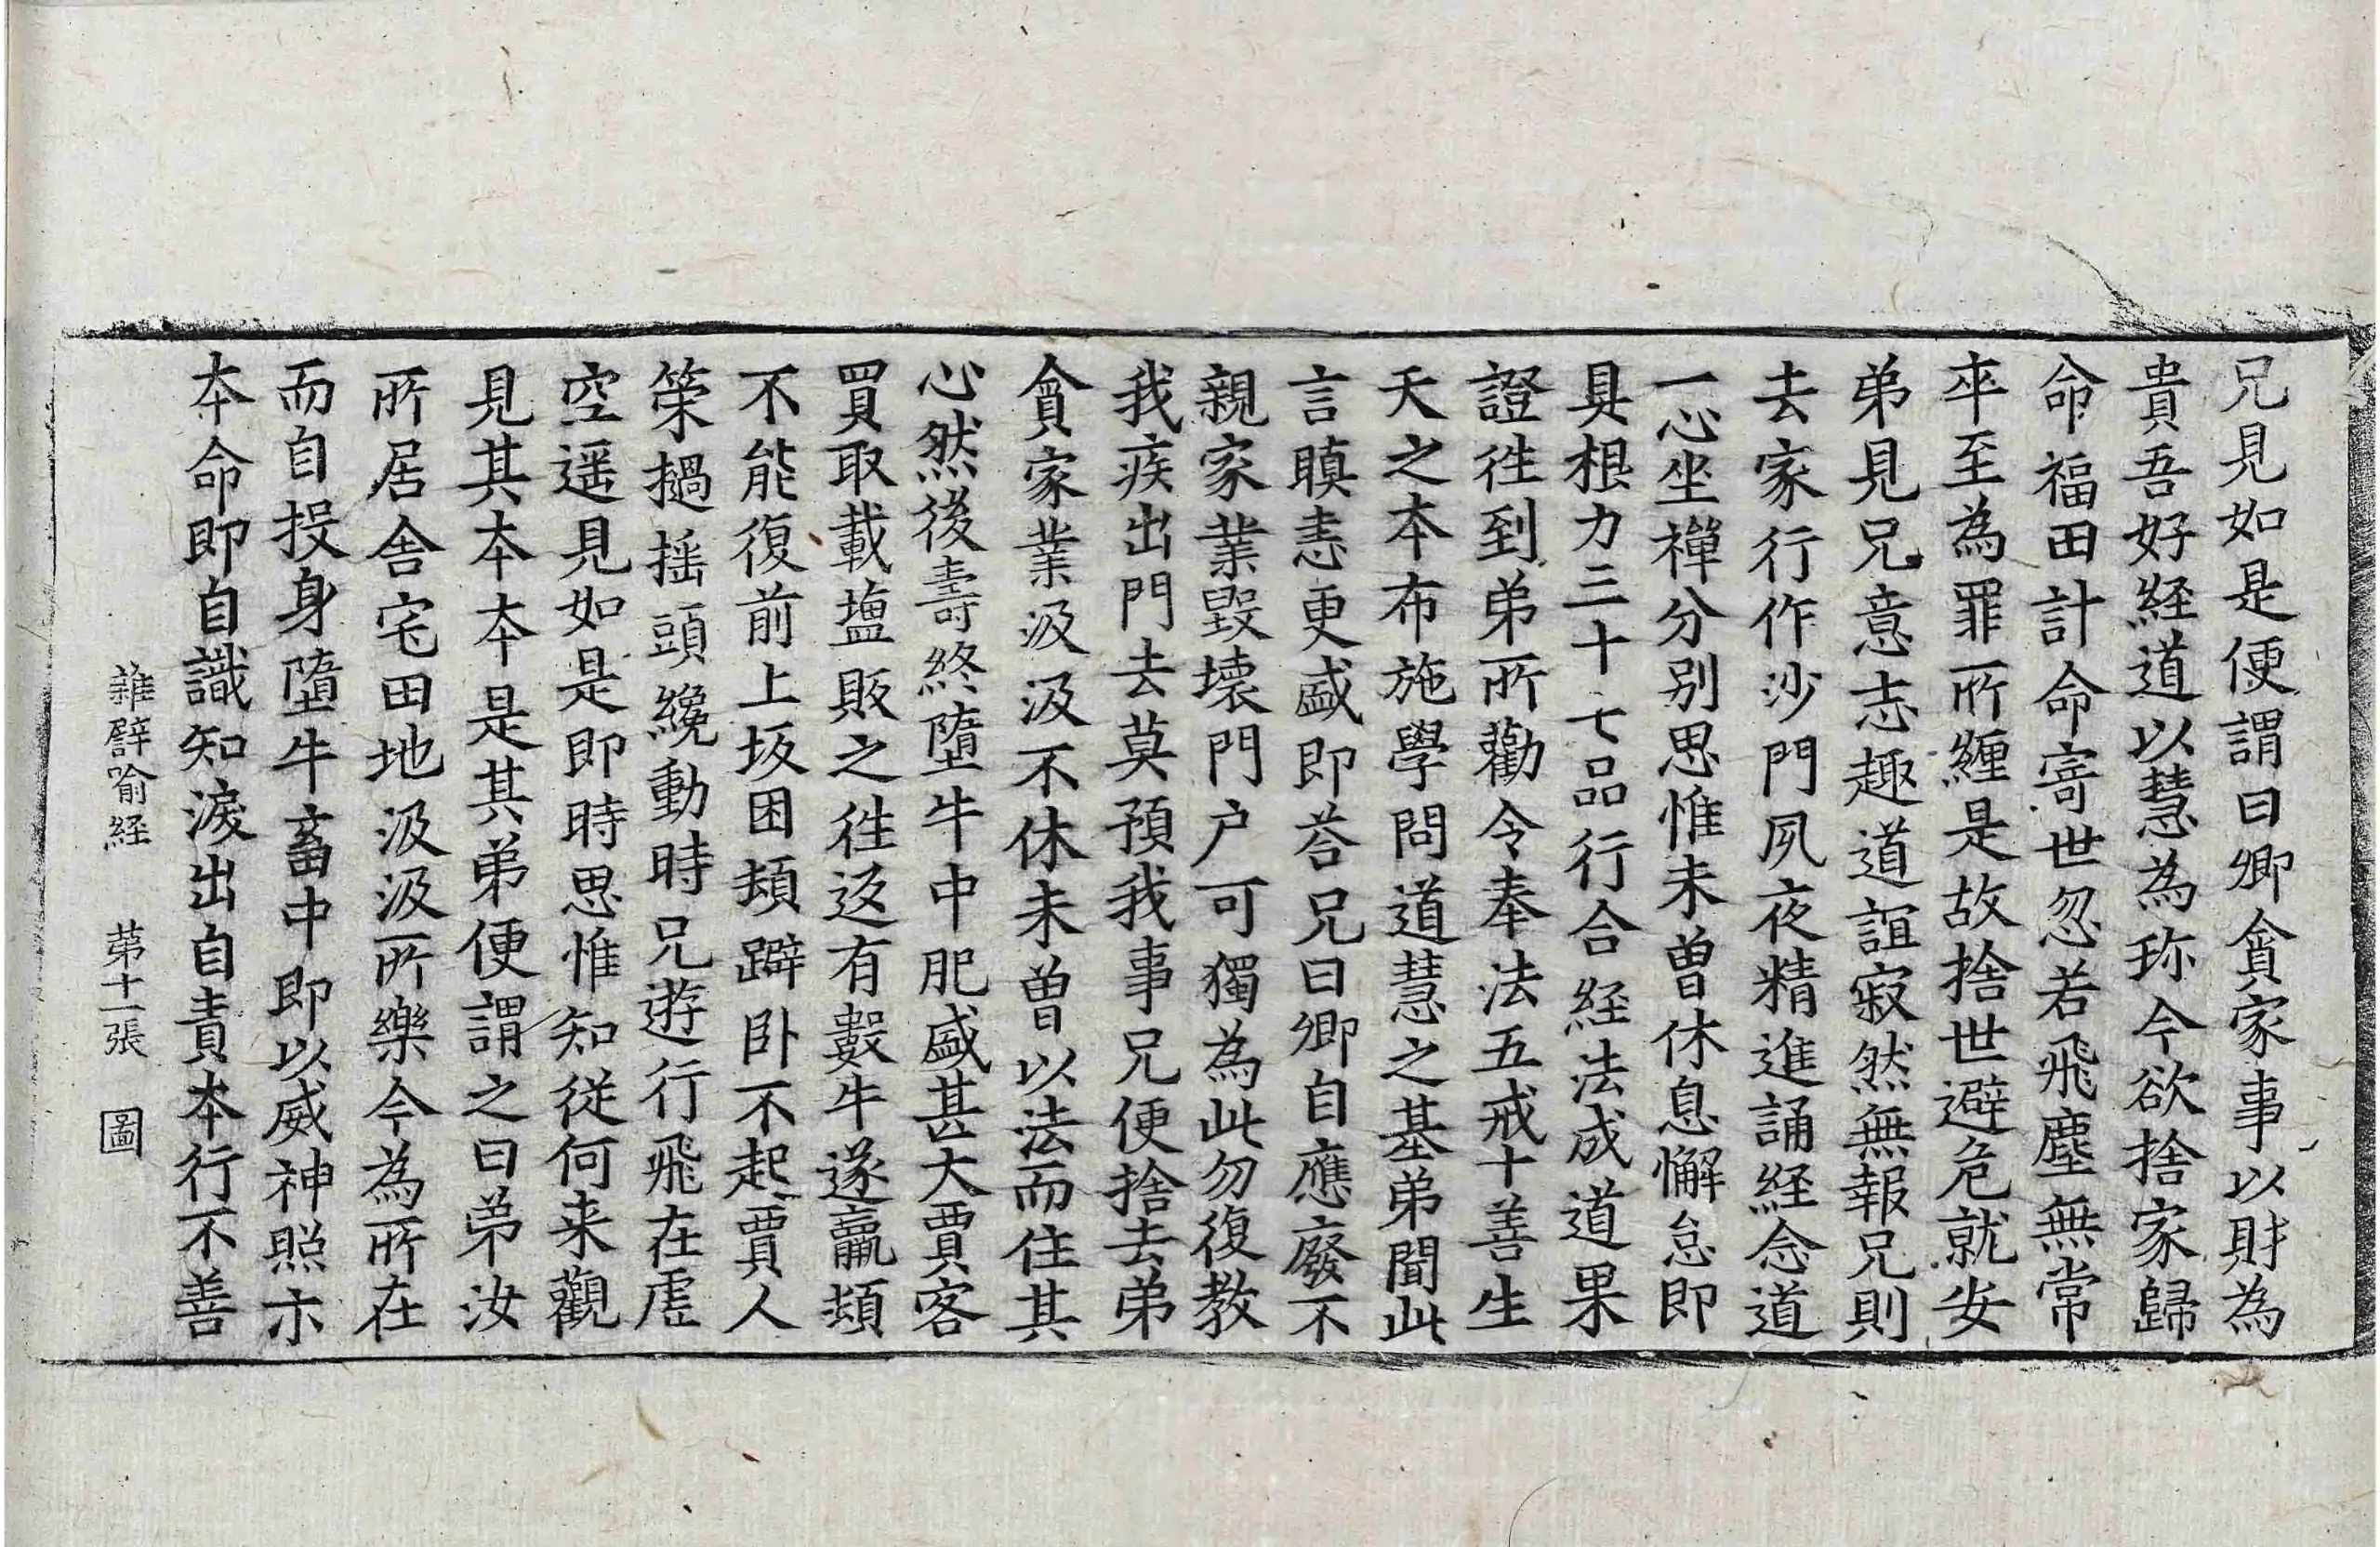 兄見如是便謂曰卿貪家事以財為
貴吾好経道以慧為珎今欲捨家歸
命福田計命寄世忽若飛塵無常
卒至為罪所纏是故捨世避危就安
弟見兄意志趣道誼寂然無報兄則
去家行作沙門夙夜精進誦経念道
一心坐禪分別思惟未曽休息懈怠即
具根力三十七品行合経法成道果
證往到弟所勸令奉法五戒十善生
天之本布施學問道慧之基弟聞此
言瞋恚更盛即荅兄曰卿自應廢不
親家業毀壞門户可獨為此勿復教
我疾出門去莫預我事兄便捨去弟
貪家業汲汲不休未曽以法而住其
心然後壽終墮牛中肥盛甚大賈客
買取載塩販之往返有數牛遂羸頓
不能復前上坂困頓躃卧不起賈人
策撾揺頭纔動時兄遊行飛在虛
空遥見如是即時思惟知従何来觀
見其本本是其弟便謂之曰弟汝
所居舎宅田地汲汲所樂今為所在
而自投身墮牛畜中即以威神照示
本命即自識知淚出自責本行不善
雜譬喻経　第十一張　圖